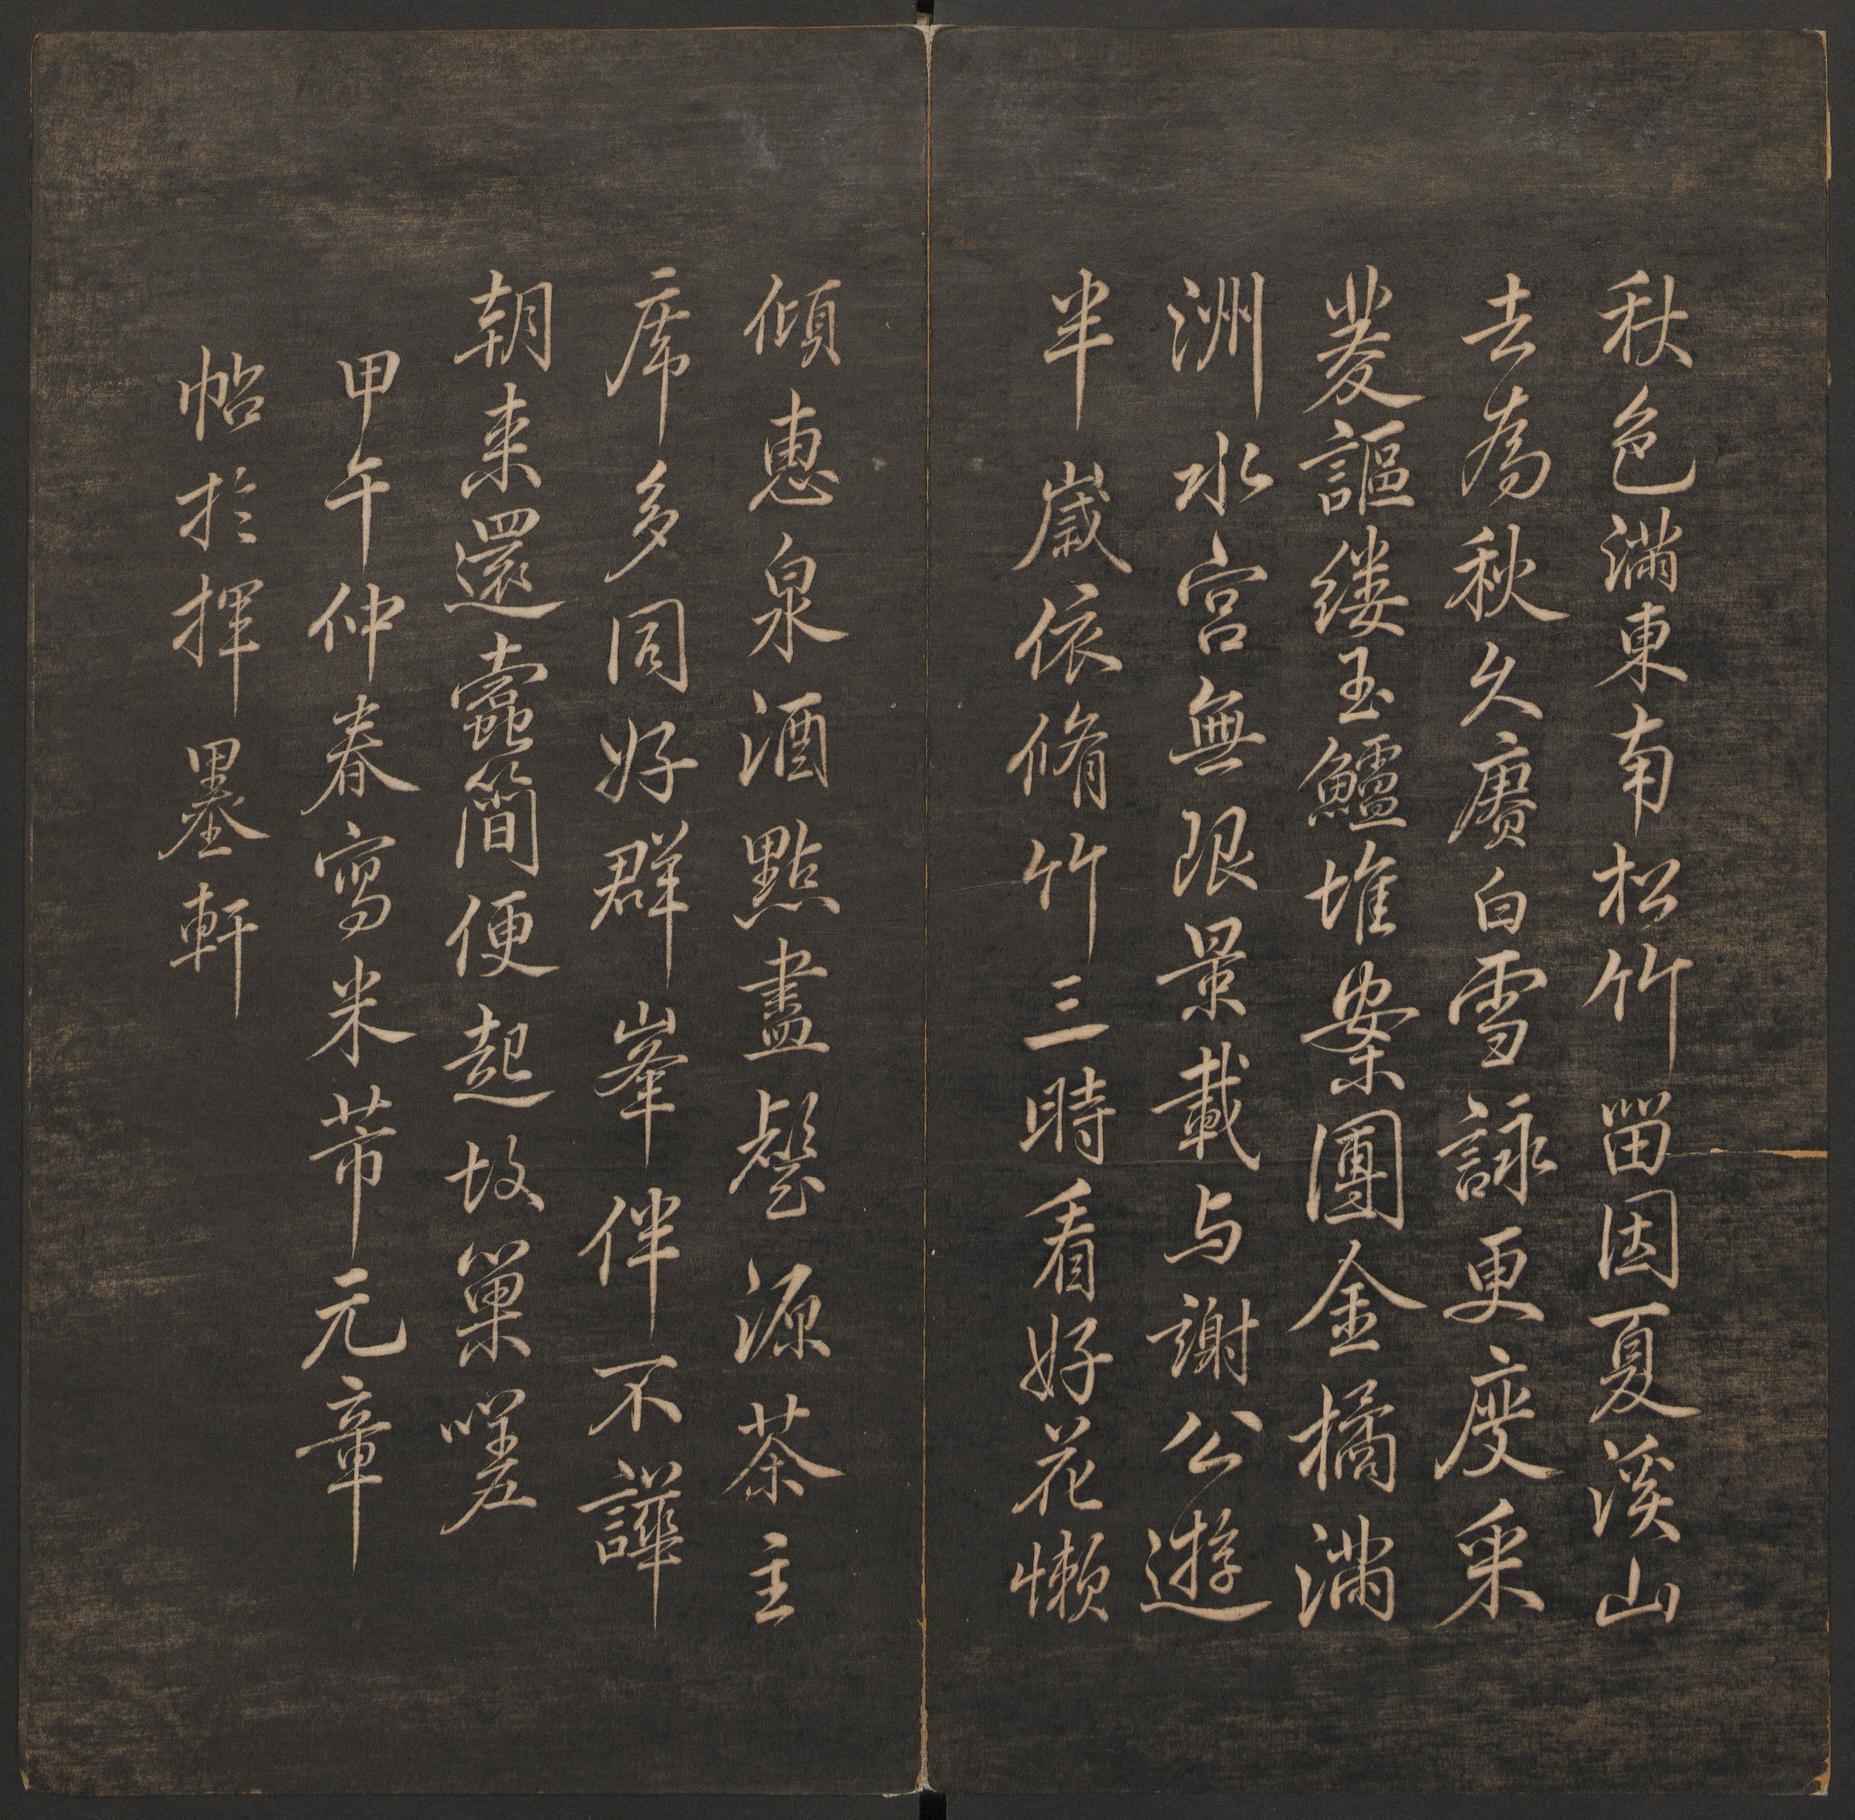 秋色滿東南松竹留因夏溪山
去為秋久賡白雪詠更度采
菱謳縷玉鱸堆案團金橘滿
洲水宮無限景載与謝公遊
半歲依脩竹三時看好花懶
傾惠泉酒點盡壑源茶主
席多同好群峯伴不譁
朝来還蠹簡便起故巢嗟
甲午仲春寫米芾元章
帖於揮墨軒